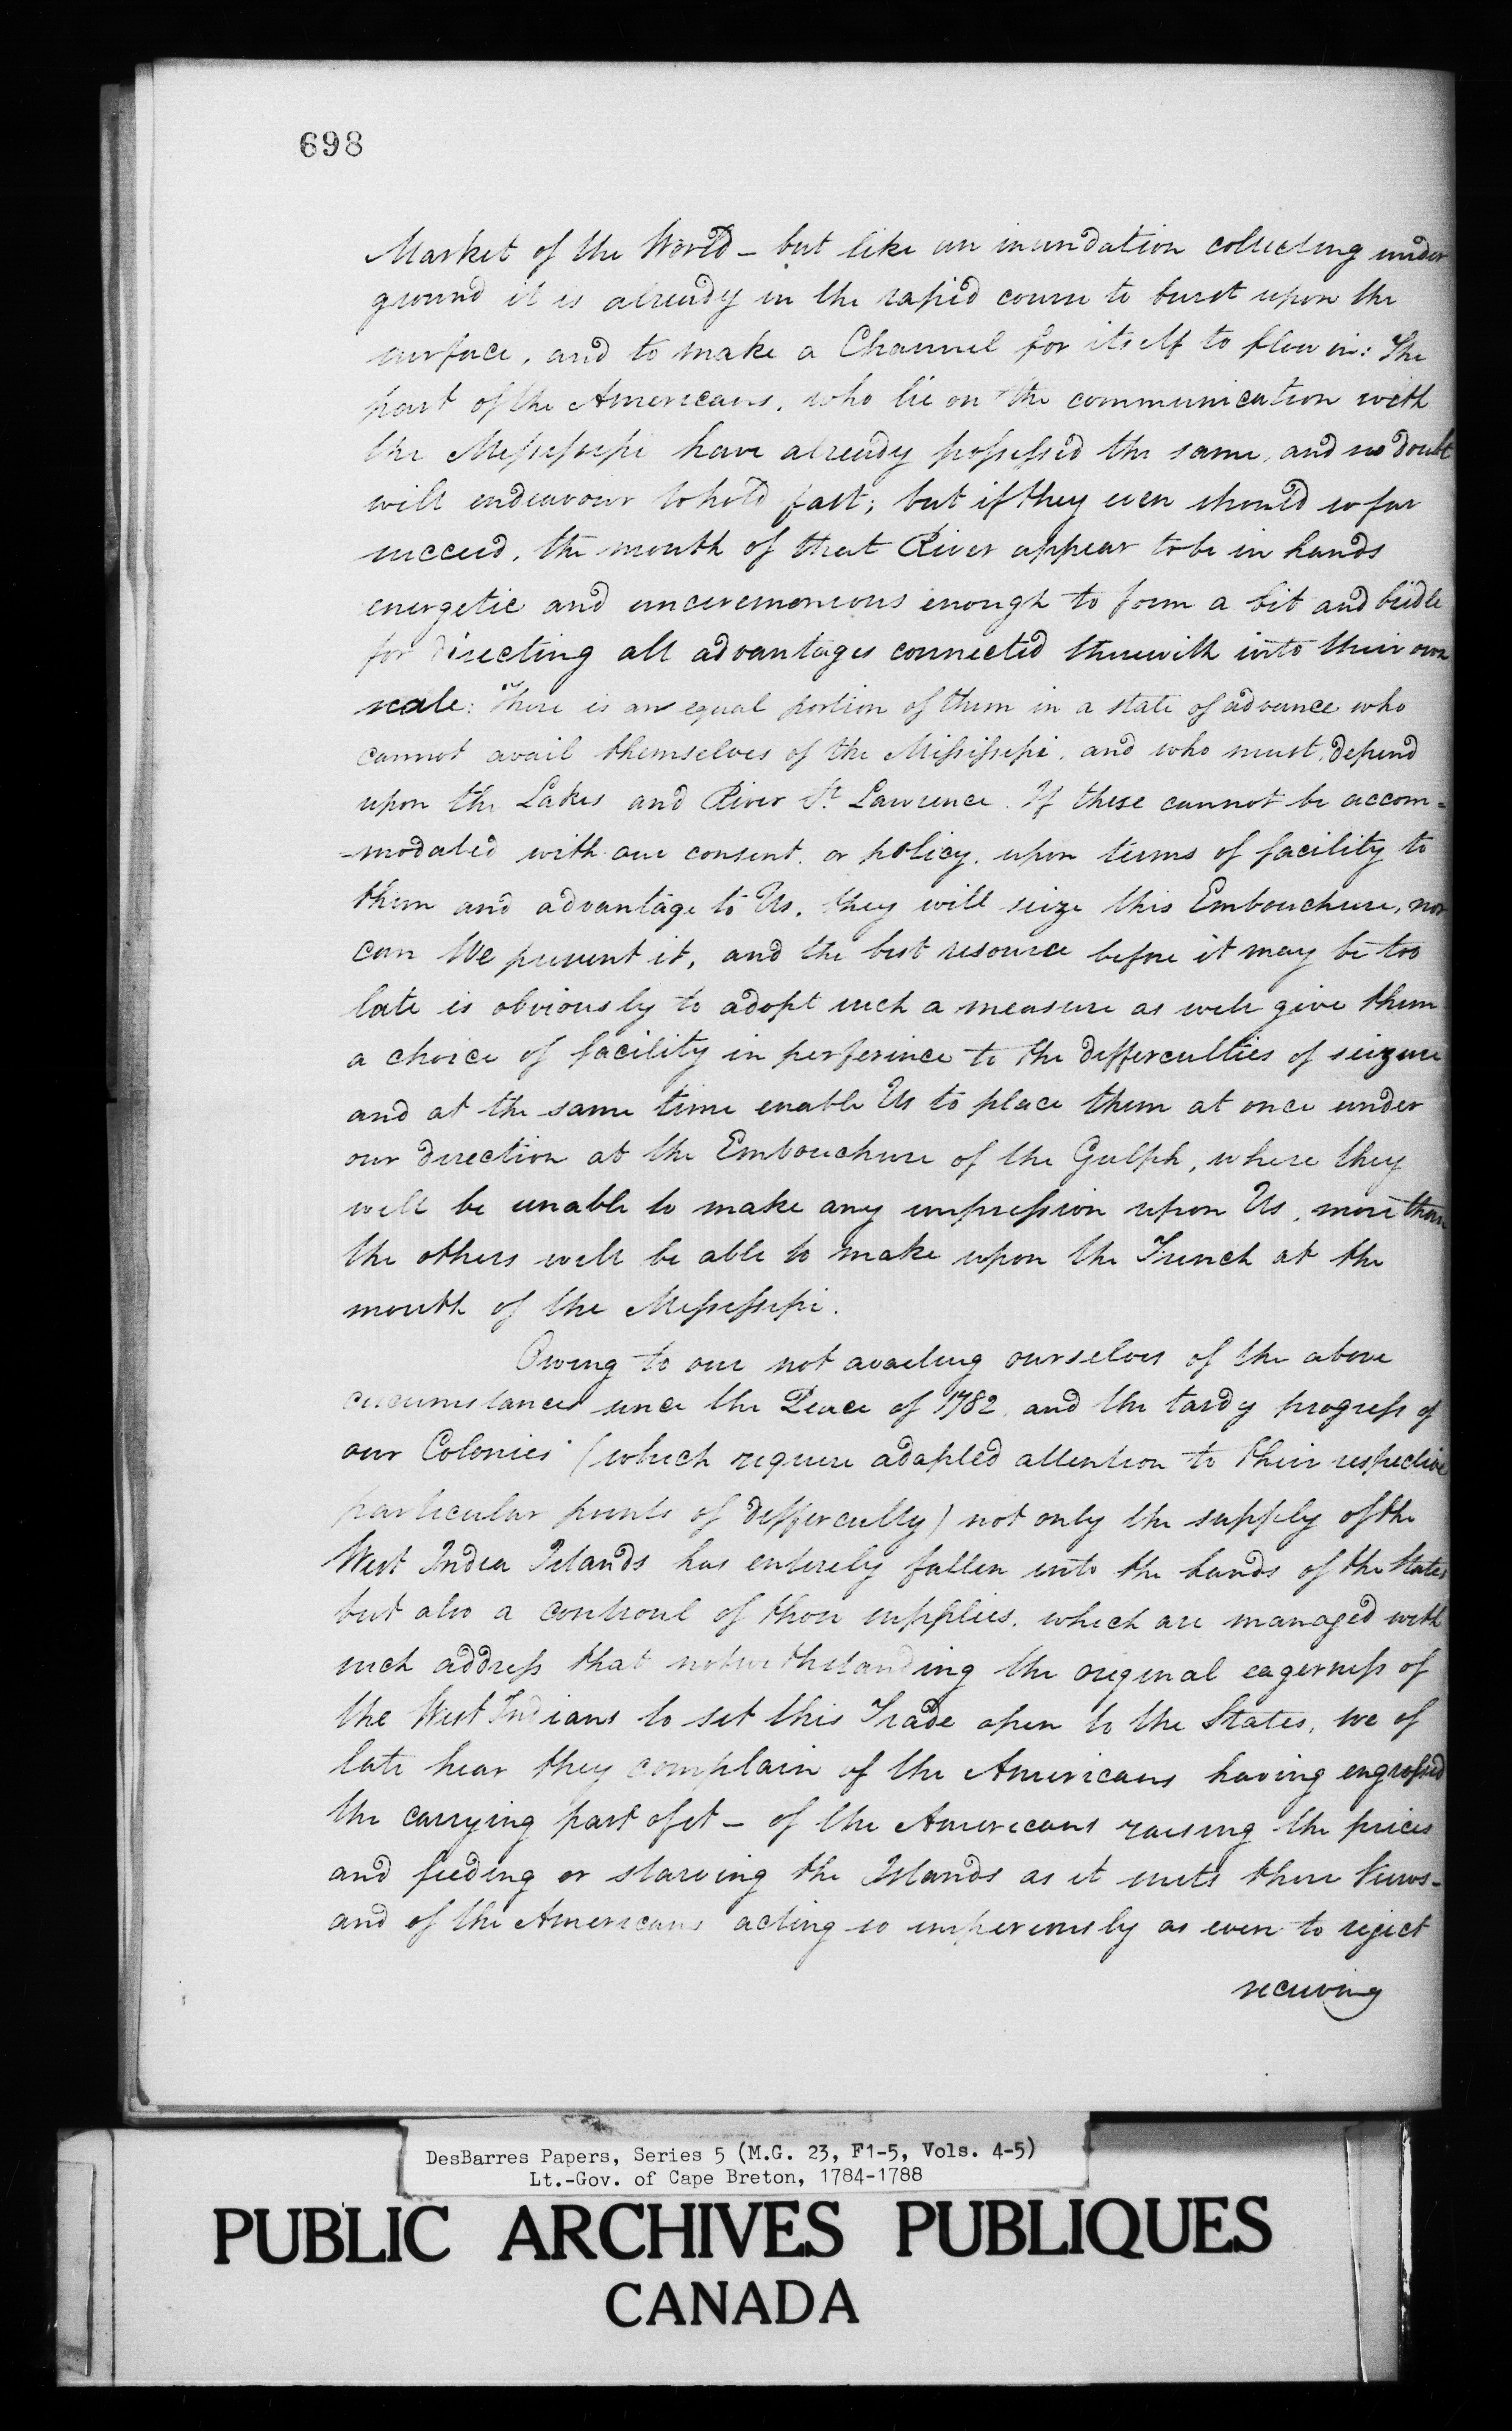 698
Market of the World – but like an inundation collecting under
ground it is already in the rapid course to burst upon the
surface, and to make a Channel for itself to flow in: The
part of the Americans, who lie on the communication with
the Messessepi have already possessed the same, and no doubt
will endeavour to hold fast; but if they even should so far
succeed, the mouth of that River appear to be in hands
energetic and unceremonious enough to form a bit and bridle
for directing all advantages connected therewith into their own
scale: There is an equal portion of them in a state of advance who
cannot avail themselves of the Mississepi, and who must depend
upon the Lakes and River St. Lawrence. If these cannot be accom-
-modated with our consent, or policy, upon terms of facility to
them and advantage to Us, they will seize this Embouchure, nor
can We prevent it, and the best resource before it may be too
late is obviously to adopt such a measure as will give them
a choice of facility in perference to the differculties of seizure
and at the same time enable Us to place them at once under
our direction at the Embouchure of the Gulph, where they
will be unable to make any impression upon Us, more than
the others will be able to make upon the French at the
mouth of the Messessepi.
Owing to our not availing ourselves of the above
circumstances since the Peace of 1782, and the tardy progress of
our Colonies (which require adapted attention to their respective
particular points of differculty) not only the supply of the
West India Islands has entirely fallen into the hands of the States
but also a controul of those supplies, which are managed with
such address that notwithstanding the original eagerness of
the West Indians to set this Trade open to the States, we of
late hear they complain of the Americans having engrossed
the carrying part of it – of the Americans raising the prices
and feeding or starving the Islands as it suits there Views –
and of the Americans acting so imperiously as even to reject
receiving
DesBarres Papers, Series 5 (M.G. 23, F1-5, Vols. 4-5)
Lt.-Gov. of Cape Breton, 1784-1788
PUBLIC ARCHIVES PUBLIQUES
CANADA